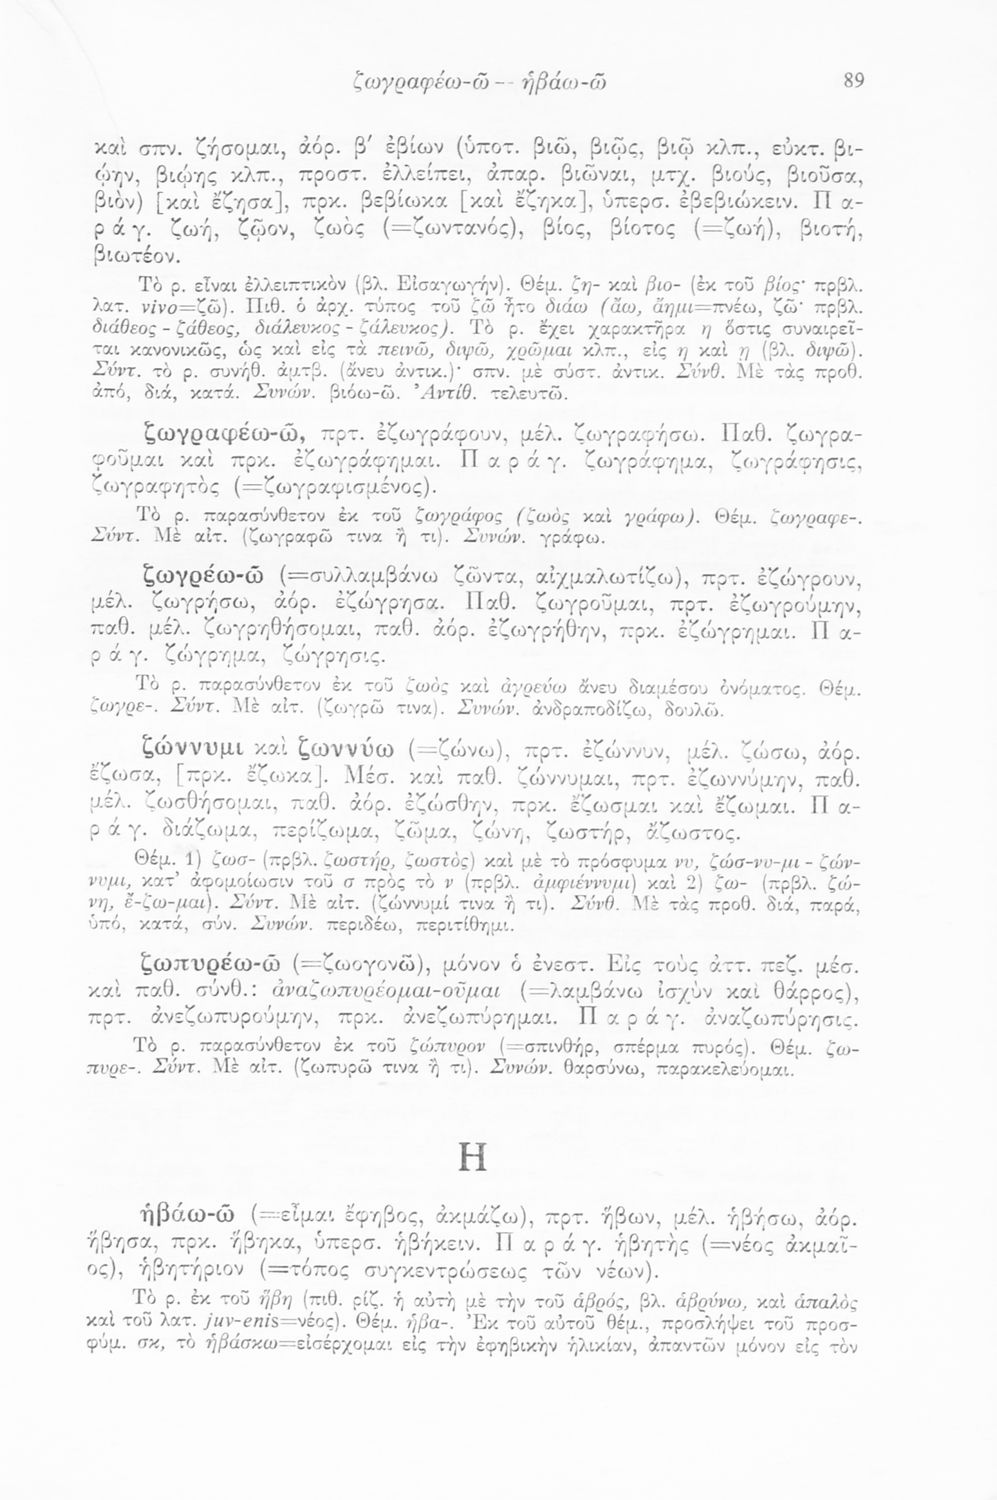 ζωγραφέω-ῶ — ἡβάω-ῶ 89
καὶ σπν. ζήσομαι, ἀόρ. β′ ἐβίων (ὑποτ. βιῶ, βιῷς, βιῷ κλπ., εὐκτ. βι-
ῴην, βιῴης κλπ., προστ. ἐλλείπει, ἀπαρ. βιῶναι, μτχ. βιούς, βιοῦσα,
βιὸν) [καὶ ἔζησα], πρκ. βεβίωκα [καὶ ἔζηκα], ὑπερσ. ἐβεβιώκειν. Π α-
ρ ά γ. ζωή, ζῷον, ζωὸς (=ζωντανός), βίος, βίοτος (=ζωή), βιοτή,
βιωτέον.
Τὸ ρ. εἶναι ἐλλειπτικὸν (βλ. Εἰσαγωγήν). Θέμ. ζη- καὶ βιο- (ἐκ τοῦ βίος· πρβλ.
λατ. vivo=ζῶ). Πιθ. ὁ ἀρχ. τύπος τοῦ ζῶ ἦτο διάω (ἄω, ἄημι=πνέω, ζῶ· πρβλ.
διάθεος - ζάθεος, διάλευκος - ζάλευκος). Τὸ ρ. ἔχει χαρακτῆρα η ὅστις συναιρεῖ-
ται κανονικῶς, ὡς καὶ εἰς τὰ πεινῶ, διψῶ, χρῶμαι κλπ., εἰς η καὶ ῃ (βλ. διψῶ).
Σύντ. τὸ ρ. συνήθ. ἀμτβ. (ἄνευ ἀντικ.)· σπν. μὲ σύστ. ἀντικ. Σύνθ. Μὲ τὰς προθ.
ἀπό, διά, κατά. Συνών. βιόω-ῶ. Ἀντίθ. τελευτῶ.
ζωγραφέω-ῶ, πρτ. ἐζωγράφουν, μέλ. ζωγραφήσω. Παθ. ζωγρα-
φοῦμαι καὶ πρκ. ἐζωγράφημαι. Π α ρ ά γ. ζωγράφημα, ζωγράφησις,
ζωγραφητὸς (=ζωγραφισμένος).
Τὸ ρ. παρασύνθετον ἐκ τοῦ ζωγράφος (ζωὸς καὶ γράφω). Θέμ. ζωγραφε-.
Σύντ. Μὲ αἰτ. (ζωγραφῶ τινα ἤ τι). Συνών. γράφω.
ζωγρέω-ῶ (=συλλαμβάνω ζῶντα, αἰχμαλωτίζω), πρτ. ἐζώγρουν,
μέλ. ζωγρήσω, ἀόρ. ἐζώγρησα. Παθ. ζωγροῦμαι, πρτ. ἐζωγρούμην,
παθ. μέλ. ζωγρηθήσομαι, παθ. ἀόρ. ἐζωγρήθην, πρκ. ἐζώγρημαι. Π α-
ρ ά γ. ζώγρημα, ζώγρησις.
Τὸ ρ. παρασύνθετον ἐκ τοῦ ζωὸς καὶ ἀγρεύω ἄνευ διαμέσου ὀνόματος. Θέμ.
ζωγρε-. Σύντ. Μὲ αἰτ. (ζωγρῶ τινα). Συνών. ἀνδραποδίζω, δουλῶ.
ζώννυμι καὶ ζωννύω (=ζώνω), πρτ. ἐζώννυν, μέλ. ζώσω, ἀόρ.
ἔζωσα, [πρκ. ἔζωκα]. Μέσ. καὶ παθ. ζώννυμαι, πρτ. ἐζωννύμην, παθ.
μέλ. ζωσθήσομαι, παθ. ἀόρ. ἐζώσθην, πρκ. ἔζωσμαι καὶ ἔζωμαι. Π α-
ρ ά γ. διάζωμα, περίζωμα, ζῶμα, ζώνη, ζωστήρ, ἄζωστος.
Θέμ. 1) ζωσ- (πρβλ. ζωστήρ, ζωστὸς) καὶ μὲ τὸ πρόσφυμα νυ, ζώσ-νυ-μι - ζών-
νυμι, κατ’ ἀφομοίωσιν τοῦ σ πρὸς τὸ ν (πρβλ. ἀμφιέννυμι) καὶ 2) ζω- (πρβλ. ζώ-
νη, ἔ-ζω-μαι). Σύντ. Μὲ αἰτ. (ζώννυμί τινα ἤ τι). Σύνθ. Μὲ τὰς προθ. διά, παρά,
ὑπό, κατά, σύν. Συνών. περιδέω, περιτίθημι.
ζωπυρέω-ῶ (=ζωογονῶ), μόνον ὁ ἐνεστ. Εἰς τοὺς ἀττ. πεζ. μέσ.
καὶ παθ. σύνθ.: ἀναζωπυρέομαι-οῦμαι (=λαμβάνω ἰσχὺν καὶ θάρρος),
πρτ. ἀνεζωπυρούμην, πρκ. ἀνεζωπύρημαι. Π α ρ ά γ. ἀναζωπύρησις.
Τὸ ρ. παρασύνθετον ἐκ τοῦ ζώπυρον (=σπινθήρ, σπέρμα πυρός). Θέμ. ζω-
πυρε-. Σύντ. Μὲ αἰτ. (ζωπυρῶ τινα ἤ τι). Συνών. θαρσύνω, παρακελεύομαι.
Η
ἡβάω-ῶ (=εἶμαι ἔφηβος, ἀκμάζω), πρτ. ἥβων, μέλ. ἡβήσω, ἀόρ.
ἥβησα, πρκ. ἥβηκα, ὑπερσ. ἡβήκειν. Π α ρ ά γ. ἡβητὴς (=νέος ἀκμαῖ-
ος), ἡβητήριον (=τόπος συγκεντρώσεως τῶν νέων).
Τὸ ρ. ἐκ τοῦ ἥβη (πιθ. ρίζ. ἡ αὐτὴ μὲ τὴν τοῦ ἁβρός, βλ. ἁβρύνω, καὶ ἁπαλὸς
καὶ τοῦ λατ. juv-enis=νέος). Θέμ. ἡβα-. Ἐκ τοῦ αὐτοῦ θέμ., προσλήψει τοῦ προσ-
φύμ. σκ, τὸ ἡβάσκω=εἰσέρχομαι εἰς τὴν ἐφηβικὴν ἡλικίαν, ἀπαντῶν μόνον εἰς τὸν